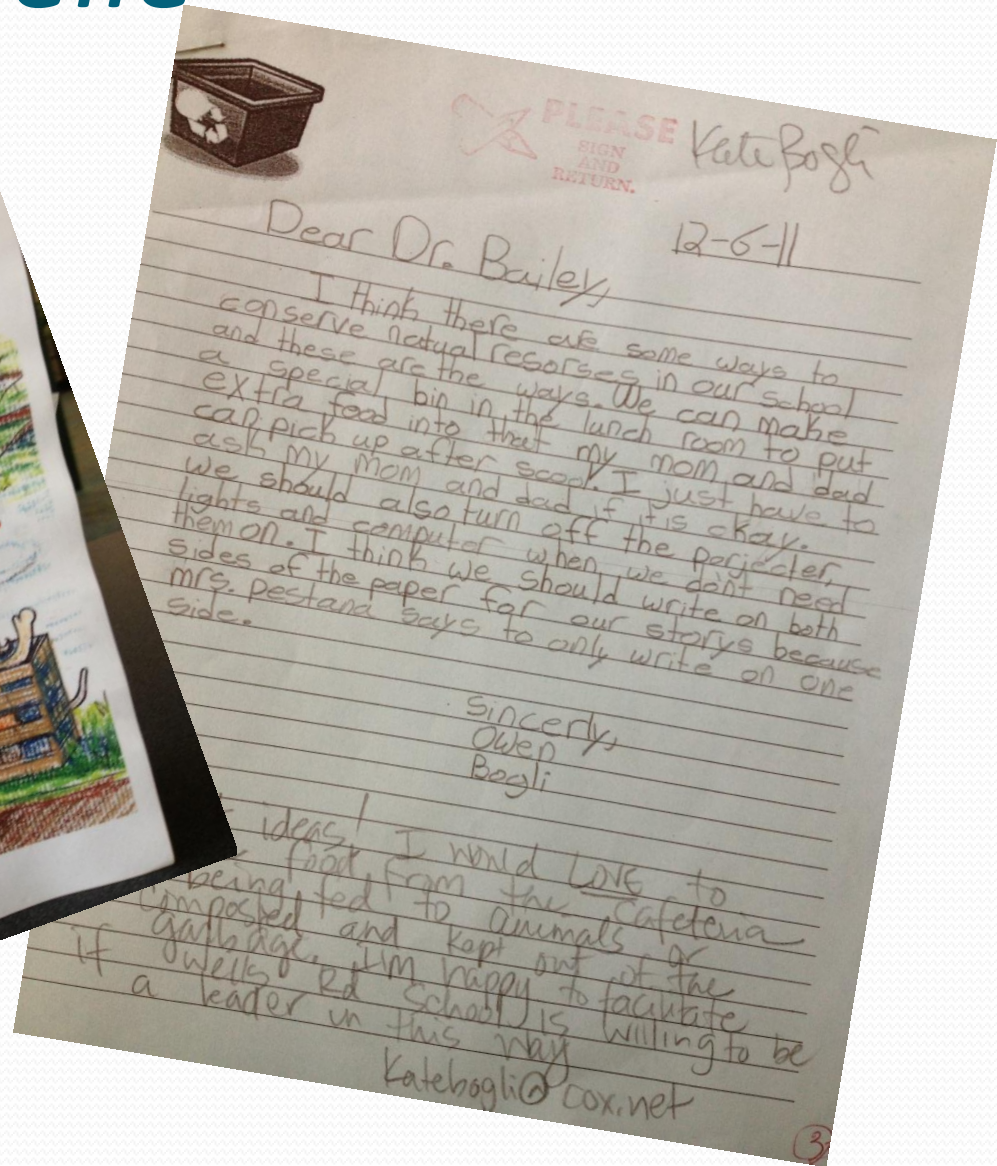 PLEASE
SIGN
AND
RETURN.
Kate Bogli
12-6-11
Dear Dr. Bailey,
I think there are some ways to
conserve natual resorses in our school
and these are the ways. We can make
a special bin in the lunch room to put
extra food into that my mom and dad
can pick up after scool. I just have to
ask my mom and dad if it is okay.
we should also turn off the porjecter,
lights and computer when we don't need
them on. I think we should write on both
sides of the paper for our storys because
mrs. pestana says to only write on one
side.
Sincerly,
Owen
Bogli
ideas! I would LOVE to
food from the cafeteria
being fed to animals or
composted and kept out of the
garbage. I'm happy to facilitate
if Wells Rd School is willing to be
a leader in this way
Katebogli@cox.net
3